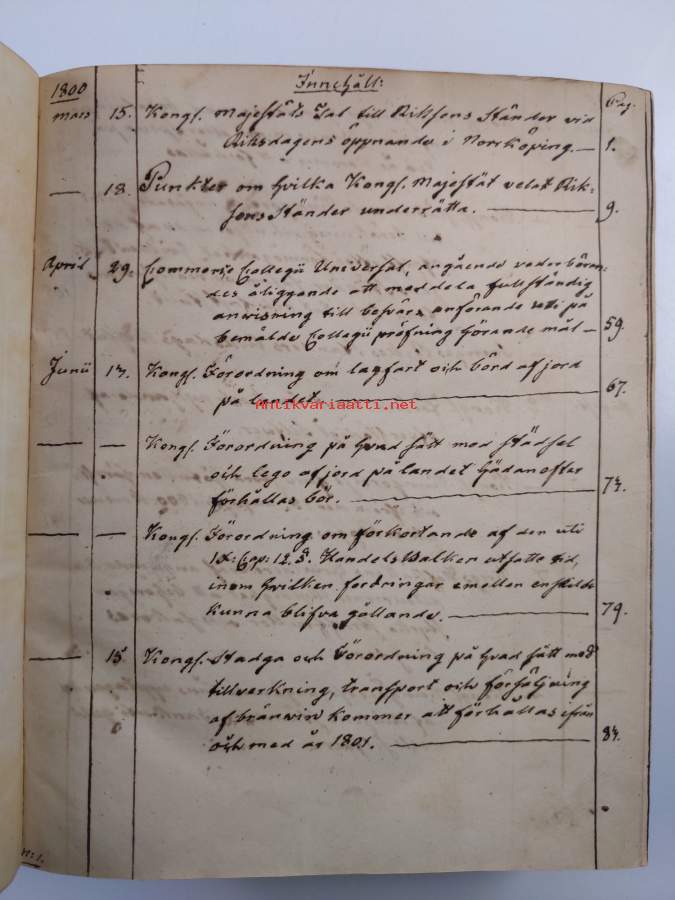 1800 Innehåll: Pag.
Mars 15. Kongl. Majestäts Tal till Riksens Ständer vid
Riksdagens öppnande i Norrköping. — 1.
— 18. Punkter om hvilka Kongl. Majestät velat Rik-
sens Ständer underrätta. — 9.
April 29. Commerse Collegii Universal, angående vederböran-
des åliggande att meddela fullständig
anvisning till besvärs anförande uti på
bemälde Collegii pröfning hörande mål — 59.
Junii Kongl. Förordning om lagfart och börd af jord
på landet — 67.
Antikvariaatti.net
— — Kongl. Förordning på hvad sätt med städsel
och lego af jord på landet hädanefter
förhållas bör. —
— — Kongl. Förordning om förkortande af den uti
Cap: 12 §. Handels Balken utsatte tid,
inom hvilken fordringar emellan enskilde
kunna blifva gällande. — 79.
— 15 Kongl. Stadga och Förordning på hvad sätt med
tillverkning, transport och försäljning
af bränwin kommer att förhållas ifrån
och med år 1801. —
N:1.